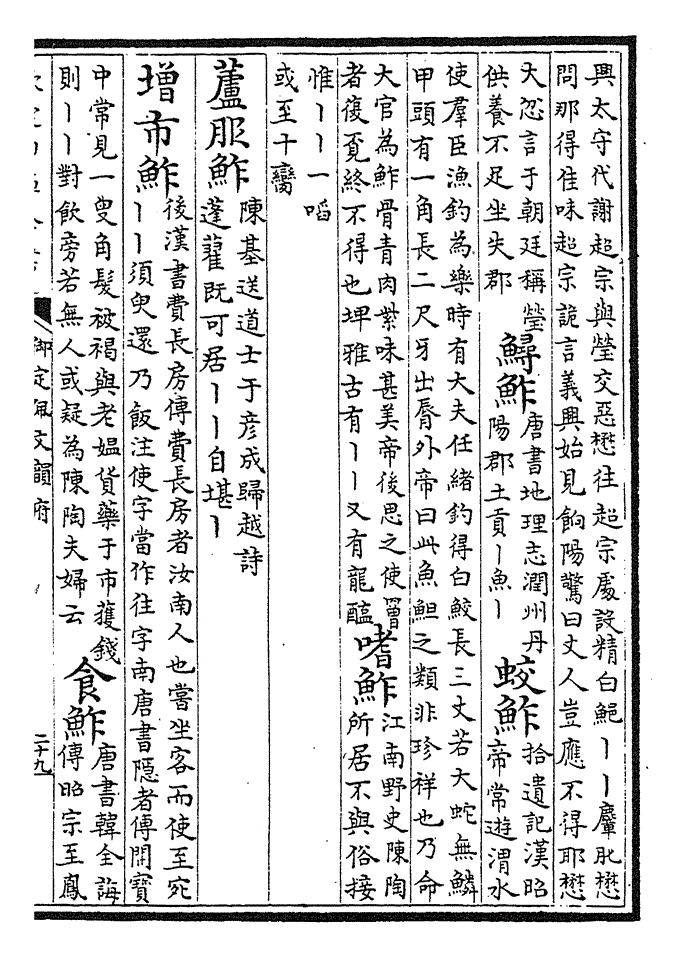 興太守代謝超宗與瑩交惡懋往超宗處設精白鮑丨丨麞肶懋
問那得佳味超宗詭言義興始見餉陽驚曰丈人豈應不得耶懋
大忿言于朝廷稱瑩
供養不足坐失郡
鱘鮓
唐書地理志潤州丹
陽郡土貢丨魚丨
蛟鮓
拾遺記漢昭
帝常遊渭水
使羣臣漁釣為樂時有大夫任緒釣得白鮫長三丈若大蛇無鱗
甲頭有一角長二尺牙出脣外帝曰此魚䱇之類非珍祥也乃命
大官為鮓骨青肉紫味甚美帝後思之使罾
者復覓終不得也埤雅古有丨丨又有龍醢
嗜鮓
江南野史陳陶
所居不與俗接
惟丨丨一啗
或至十臠
蘆服鮓
陳基送道士于彥成歸越詩
蓬藋既可居丨丨自堪丨
増市鮓
後漢書費長房傳費長房者汝南人也嘗坐客而使至宛
丨丨須臾還乃飯注使字當作往字南唐書隱者傳開寶
中常見一叟角髮被褐與老媼貨藥于市獲錢
則丨丨對飲旁若無人或疑為陳陶夫婦云
食鮓
唐書韓全誨
傳昭宗至鳳
御定佩文韻府
二十九